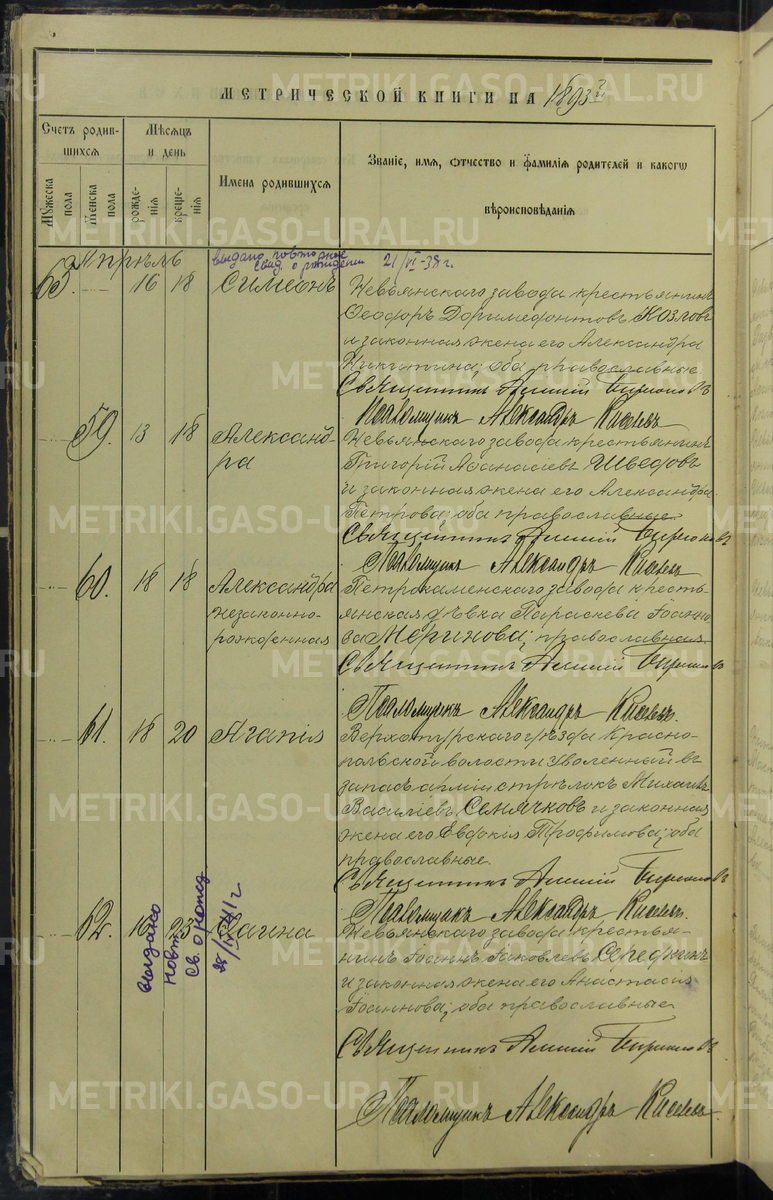 МЕТРИЧЕСКОЙ КНИГИ НА 1893 г
Счетъ родив-
шихся
Мѣсяцъ
и день
Мужеска
пола
Женска
пола
рожде-
нія
креще-
нія
Имена родившихся
Званіе, имя, отчество и фамилія родителей и какого
вѣроисповѣданія
Апрѣль
выдано повторное
свид. о рождении 21/VI-38 г.
65. 16 18 Симеонъ
Невьянскаго завода крестьянинъ
Ѳеодоръ Доримедонтовъ Козловъ
и законная жена его Александра
Никитина; оба православные
Священникъ
Псаломщикъ Александръ Киселевъ
59. 13 18 Александ-
ра
Невьянскаго завода крестьянинъ
Григорій Аѳанасіевъ Шведовъ
и законная жена его Александра
Петрова; оба православные
Священникъ
Псаломщикъ Александръ Киселевъ
60. 18 18 Александра
незаконно-
рожденная
Петрокаменскаго завода кресть-
янская дѣвка Параскева Іоанно-
ва Меринова; православная
Священникъ
Псаломщикъ Александръ Киселевъ.
61. 18 20 Агапія
Верхотурскаго уѣзда Красно-
польской волости уволенный въ
запасъ арміи стрѣлокъ Михаилъ
Василіевъ Семячковъ и законная
жена его Евдокія Трофимова; оба
православные
Священникъ
Псаломщикъ Александръ Киселевъ.
62. 16 23 Фаина
выдано
повт
Св. о рожд.
28/IX 41 г
Невьянскаго завода крестья-
нинъ Іоаннъ Іаковлевъ Середкинъ
и законная жена его Анастасія
Іоаннова; оба православные
Священникъ
Псаломщикъ Александръ Киселевъ.
METRIKI.GASO-URAL.RU